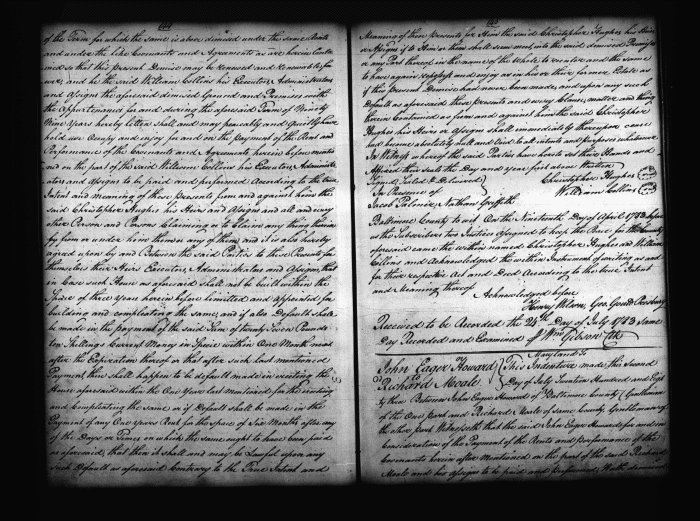 of the Term for which the same is above demised under the same Rents
and under the like Covenants and Agreements as are herein Conta
ined so that this present Demise may be renewed and Renewable for
ever, and he the said William Collins his Executors Administrators
and Assigns the aforesaid demised Ground and Premises with
the Appurtenances for and during the aforesaid Term of Ninety
Nine Years hereby letten Shall and may peaceably and Quietly have
hold use Occupy and enjoy for and on the Payment of the Rent and
Performance of the Covenants and Agreements herein before mentio
ned on the part of the said William Collins his Executors Administr
ators and Assigns to be paid and performed According to the true
Intent and Meaning of these Presents from and against him the
said Christopher Hughes his Heirs and Assigns and all and every
other Person and Persons Claiming or to Claim any thing therein
by from or under him them or any of them, and it is also hereby
agreed upon by and Between the said Parties to these Presents for
themselves their Heirs Executors Administrators and Assigns, that
in Case such House as aforesaid shall not be built within the
Space of three Years herein before limitted and appointed for
building and compleating the same, and if also Default shall
be made in the payment of the said Sum of twenty Seven Pounds
ten Shillings Current Money in Specie within One Month next
after the Expiration thereof or that after such last mentioned
Payment there shall happen to be default made in erecting the
House aforesaid within the One Year last mentioned for the erecting
and Compleating the same or if Default shall be made in the
Payment of any One Years Rent for the Space of six Months after any
of the Days or Times on which the same ought to have been paid
as aforesaid, that then it shall and may be Lawful upon any
such Default as aforesaid Contrary to the True Intent and
Meaning of these presents for Him the said Christopher Hughes his Heirs
or Assigns if to Him or them shall seem meet, into the said demised Premises
or any Part thereof in the name of the Whole to reenter and the same
to have again repossess and enjoy as in his or their former Estate as
if this Present Demise had never been made, and upon any such
Default as aforesaid these presents and every Clause, matter and thing
herein Contained as from and against him the said Christopher
Hughes his Heirs or Assigns shall immediately thereupon cease
and become absolutely null and Void to all intents and purposes whatsoever
In Witness whereof the said Parties have hereto set their Hands and
Affixed their Seals the Day and Year first above Written
Signed Sealed & Delivered Christopher Hughes
In Presence of William Collins
Jacob Palmer Nathan Griffith
Baltimore County to wit On the Nineteenth Day of April 1783 before
us the Subscribers two Justices Assigned to keep the Peace for the County
aforesaid came the within named Christopher Hughes and William
Collins and Acknowledged the within Instrument of writing as and
for their respective Act and Deed According to the true Intent
and Meaning thereof
Acknowledged before
Henry Wilson, Geo. Gould Presbury
Received to be Recorded the 24th Day of July 1783 Same
Day Recorded and Examined Wm Gibson Clk
Maryland to
John Eager Howard This Indenture made this Second
to Richard Moale Day of July Seventeen Hundred and Eigh
ty three Between John Eager Howard of Baltimore County Gentleman
of the One Part and Richard Moale of same County Gentleman of
the other Part Witnesseth that the said John Eager Howard for and in
Consideration of the Payment of the Rents and performance of the
Covenants herein after Mentioned on the part of the said Richard
Moale and his Assigns to be paid and performed Hath demised